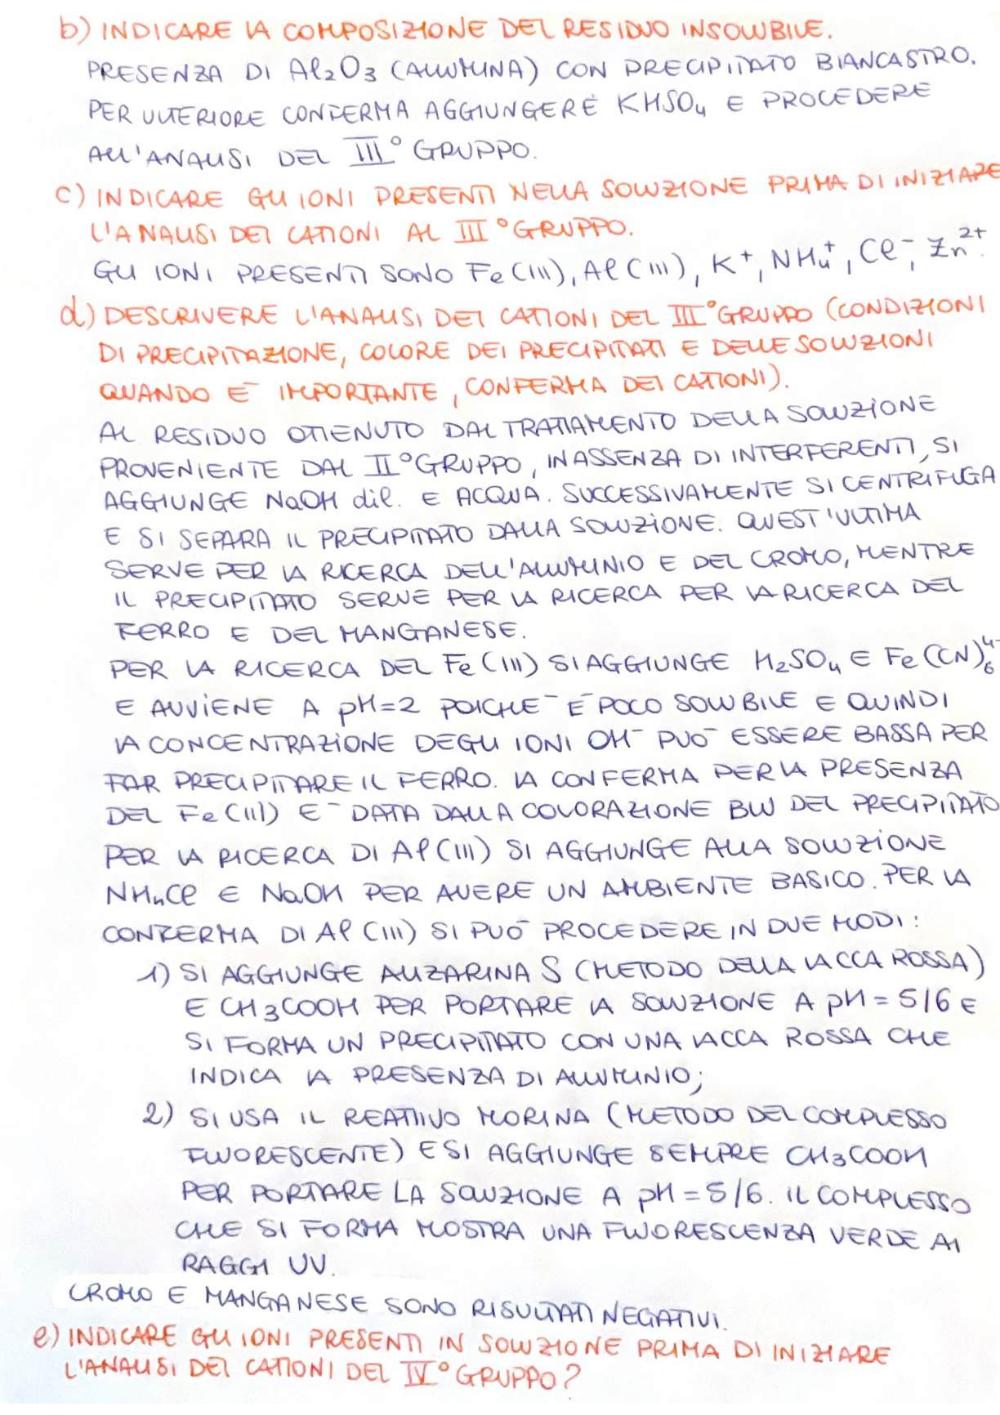 b) INDICARE LA COMPOSIZIONE DEL RESIDUO INSOLUBILE.
PRESENZA DI Al₂O₃ (ALLUMINA) CON PRECIPITATO BIANCASTRO.
PER ULTERIORE CONFERMA AGGIUNGERE KHSO₄ E PROCEDERE
ALL'ANALISI DEL III° GRUPPO.
c) INDICARE GLI IONI PRESENTI NELLA SOLUZIONE PRIMA DI INIZIARE
L'ANALISI DEI CATIONI AL III° GRUPPO.
GLI IONI PRESENTI SONO Fe (III), Al (III), K⁺, NH₄⁺, Cl⁻, Zn²⁺.
d) DESCRIVERE L'ANALISI DEI CATIONI DEL III° GRUPPO (CONDIZIONI
DI PRECIPITAZIONE, COLORE DEI PRECIPITATI E DELLE SOLUZIONI
QUANDO È IMPORTANTE, CONFERMA DEI CATIONI).
AL RESIDUO OTTENUTO DAL TRATTAMENTO DELLA SOLUZIONE
PROVENIENTE DAL II° GRUPPO, IN ASSENZA DI INTERFERENTI, SI
AGGIUNGE NaOH dil. E ACQUA. SUCCESSIVAMENTE SI CENTRIFUGA
E SI SEPARA IL PRECIPITATO DALLA SOLUZIONE. QUEST'ULTIMA
SERVE PER LA RICERCA DELL'ALLUMINIO E DEL CROMO, MENTRE
IL PRECIPITATO SERVE PER LA RICERCA PER LA RICERCA DEL
FERRO E DEL MANGANESE.
PER LA RICERCA DEL Fe (III) SI AGGIUNGE H₂SO₄ E Fe(CN)₆⁴⁻
E AVVIENE A pH=2 POICHÈ È POCO SOLUBILE E QUINDI
LA CONCENTRAZIONE DEGLI IONI OH⁻ PUÒ ESSERE BASSA PER
FAR PRECIPITARE IL FERRO. LA CONFERMA PER LA PRESENZA
DEL Fe (III) È DATA DALLA COLORAZIONE BLU DEL PRECIPITATO
PER LA RICERCA DI Al (III) SI AGGIUNGE ALLA SOLUZIONE
NH₄Cl E NaOH PER AVERE UN AMBIENTE BASICO. PER LA
CONFERMA DI Al (III) SI PUÒ PROCEDERE IN DUE MODI:
1) SI AGGIUNGE ALIZARINA S (METODO DELLA LACCA ROSSA)
E CH₃COOH PER PORTARE LA SOLUZIONE A pH = 5/6 E
SI FORMA UN PRECIPITATO CON UNA LACCA ROSSA CHE
INDICA LA PRESENZA DI ALLUMINIO;
2) SI USA IL REATTIVO MORINA (METODO DEL COMPLESSO
FLUORESCENTE) E SI AGGIUNGE SEMPRE CH₃COOH
PER PORTARE LA SOLUZIONE A pH = 5/6. IL COMPLESSO
CHE SI FORMA MOSTRA UNA FLUORESCENZA VERDE AI
RAGGI UV.
CROMO E MANGANESE SONO RISULTATI NEGATIVI.
e) INDICARE GLI IONI PRESENTI IN SOLUZIONE PRIMA DI INIZIARE
L'ANALISI DEI CATIONI DEL IV° GRUPPO?